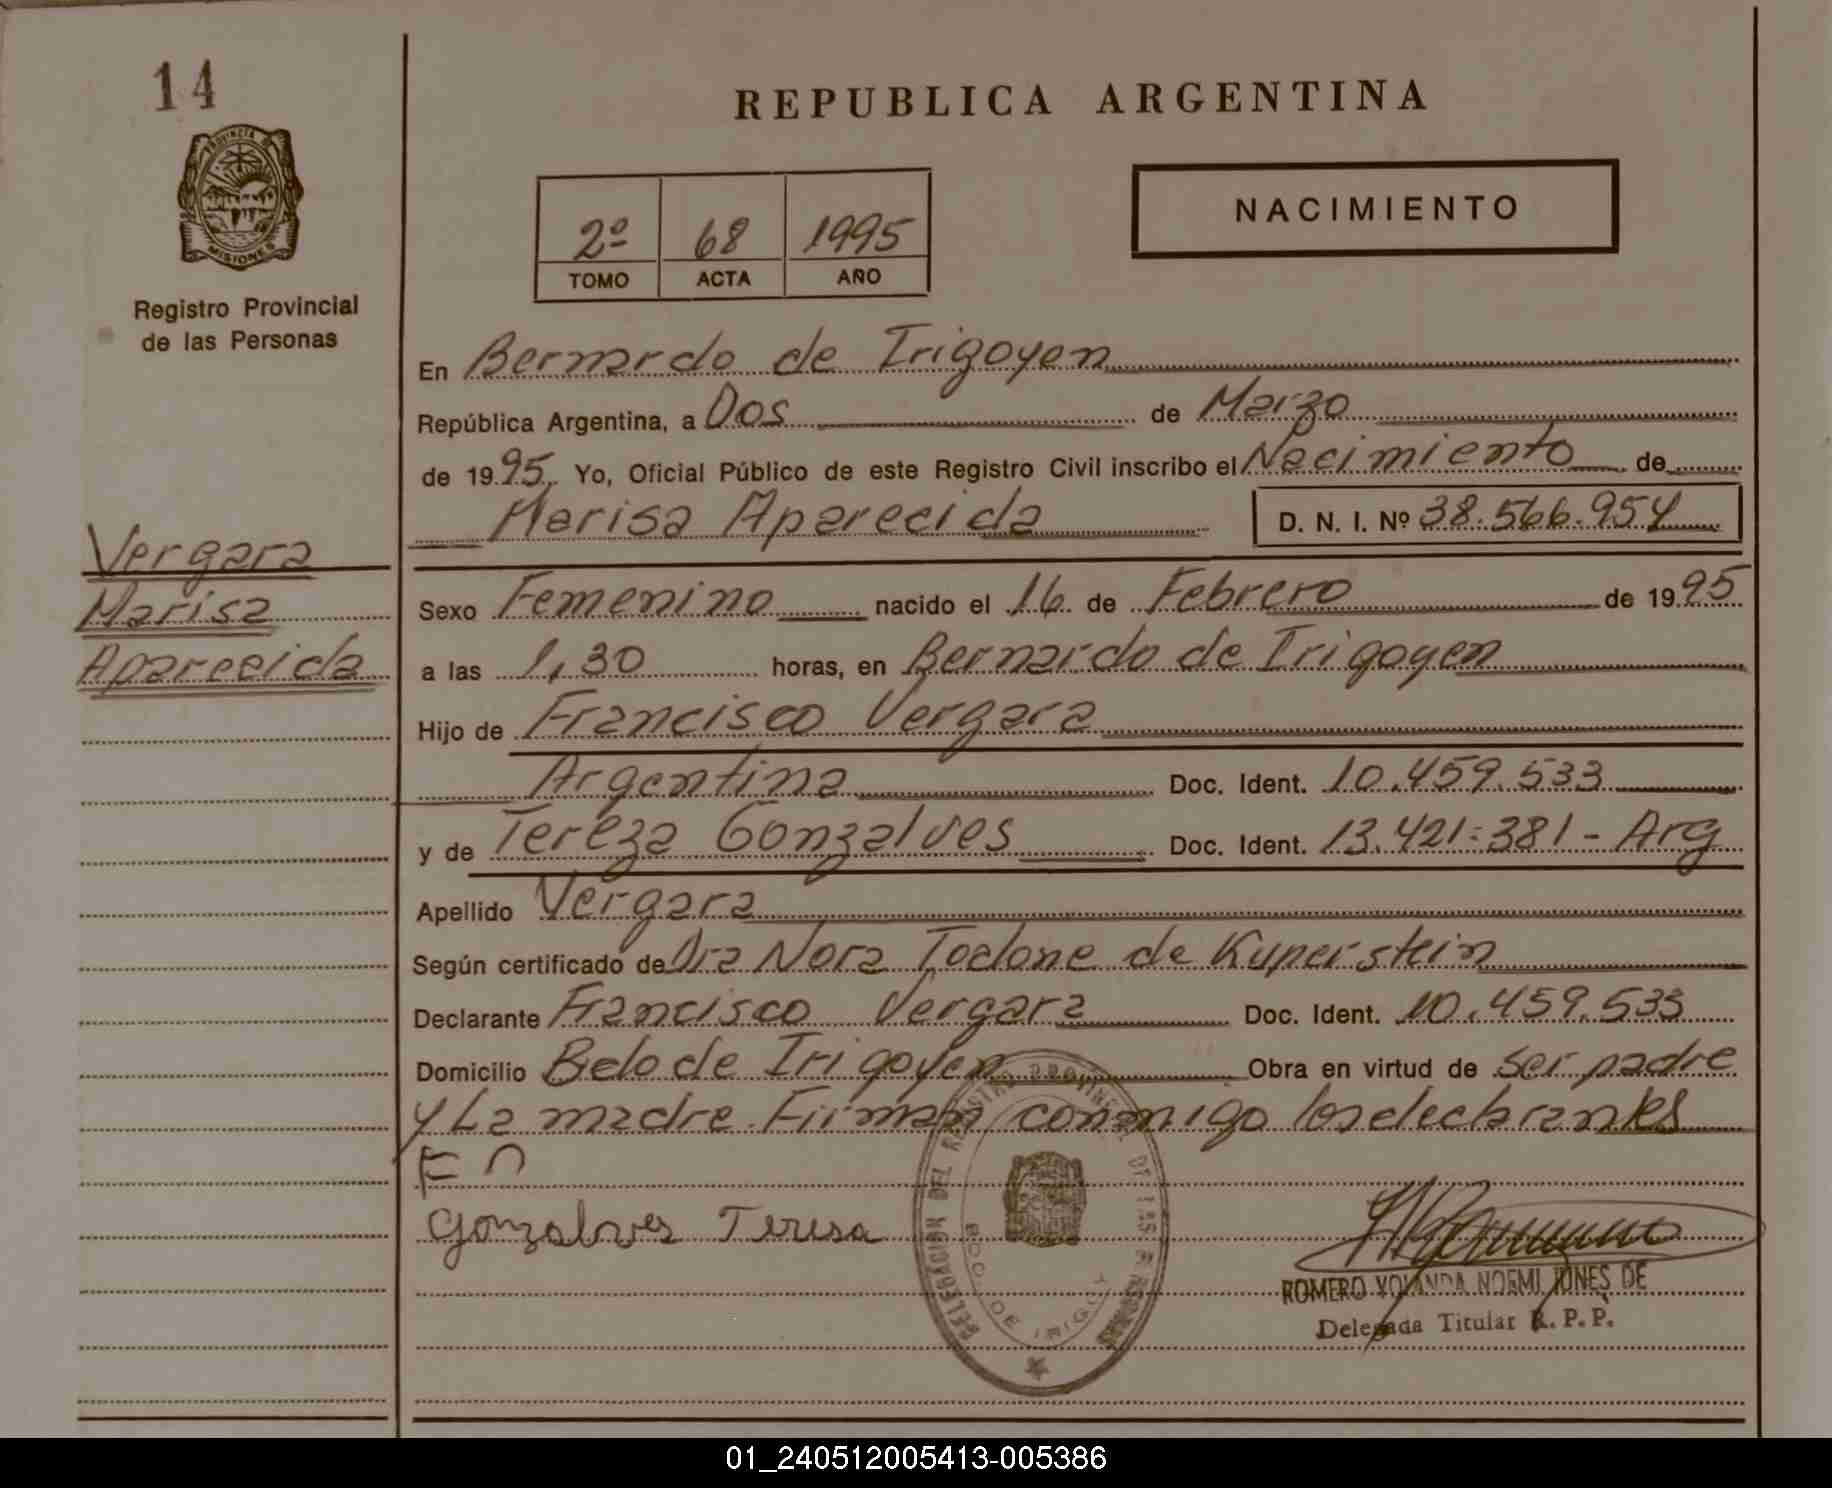 14
PROVINCIA DE
MISIONES
Registro Provincial
de las Personas
REPUBLICA ARGENTINA
2º 68 1995
TOMO ACTA AÑO
NACIMIENTO
En Bernardo de Irigoyen
República Argentina, a Dos de Marzo
de 1995. Yo, Oficial Público de este Registro Civil inscribo el Nacimiento de
Marisa Aparecida D. N. I. Nº 38.566.954
Vergara
Marisa
Aparecida
Sexo Femenino nacido el 16 de Febrero de 1995
a las 1,30 horas, en Bernardo de Irigoyen
Hijo de Francisco Vergara
Argentina Doc. Ident. 10.459.533
y de Tereza Gonzalves Doc. Ident. 13.421.381 - Arg
Apellido Vergara
Según certificado de Dra Nora Todone de Kuperstein
Declarante Francisco Vergara Doc. Ident. 10.459.533
Domicilio Bdo de Irigoyen Obra en virtud de ser padre
y La madre. Firman conmigo los declarantes
Gonzalves Teresa
DELEGACION DEL REGISTRO PROVINCIAL DE LAS PERSONAS
BDO. DE IRIGOY
ROMERO YOLANDA NOEMI JONES DE
Delegada Titular R. P. P.
01_240512005413-005386